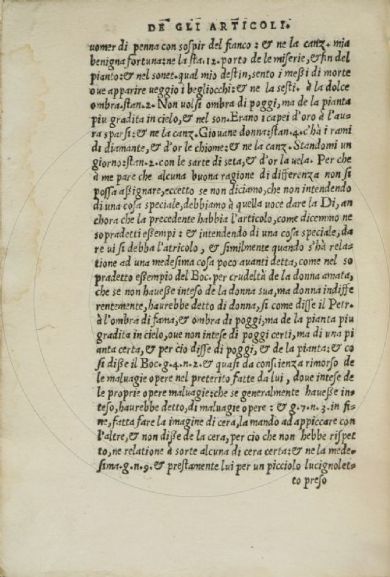 DE GLI ARTICOLI.
uomer di penna con sospir del fianco : & ne la canz. mia
benigna fortuna: ne la sta. 12. porto de le miserie, & fin del
pianto: & nel sonet. qual mio destin, sento i messi di morte
oue apparire ueggio i begliocchi: & ne la sesti. à la dolce
ombra. stan. 2. Non uolsi ombra di poggi, ma de la pianta
piu gradita in cielo, & nel son. Erano i capei d'oro à l'au
ra sparsi: & ne la canz. Giouane donna: stan. 4. c'hà i rami
di diamante, & d'or le chiome: & ne la canz. Standomi un
giorno: stan. 2. con le sarte di seta, & d'or la uela. Per che
à me pare che alcuna buona ragion di differenza non si
possa assignare, eccetto se non diciamo, che non intendendo
di una cosa speciale, debbiamo à quella uoce dare la Di, an
chora che la precedente habbia l'articolo, come dicemmo ne
sopradetti essempi : & intendendo di una cosa speciale, da
re ui si debba l'atricolo, & similmente quando s'hà rela
tione ad una medesima cosa poco auanti detta, come nel so
pradetto essempio del Boc. per crudeltà de la donna amata,
che se non hauesse inteso de la donna sua, ma donna indiffe
rentemente, haurebbe detto di donna, si come disse il Petr.
à l'ombra di fama, & ombra di poggi, ma de la pianta piu
gradita in cielo, oue non intese di poggi certi, ma di una pi
anta certa, & per cio disse di poggi, & de la pianta: & co
si disse il Boc. g. 4. n. 2. & quasi da conscienza rimorso de
le maluagie opere nel preterito fatte da lui, doue intese de
le proprie opere maluagie: che se generalmente hauesse in
teso, haurebbe detto, di maluagie opere : & g. 7. n. 3. in fi
ne, fatta fare la imagine di cera, la mando ad appiccare con
l'altre, & non disse de la cera, per cio che non hebbe rispet
to, ne relatione à sorte alcuna di cera certa: & ne la mede-
sima. g. n. 9. & prestamente lui per un picciolo lucignolet-
to preso